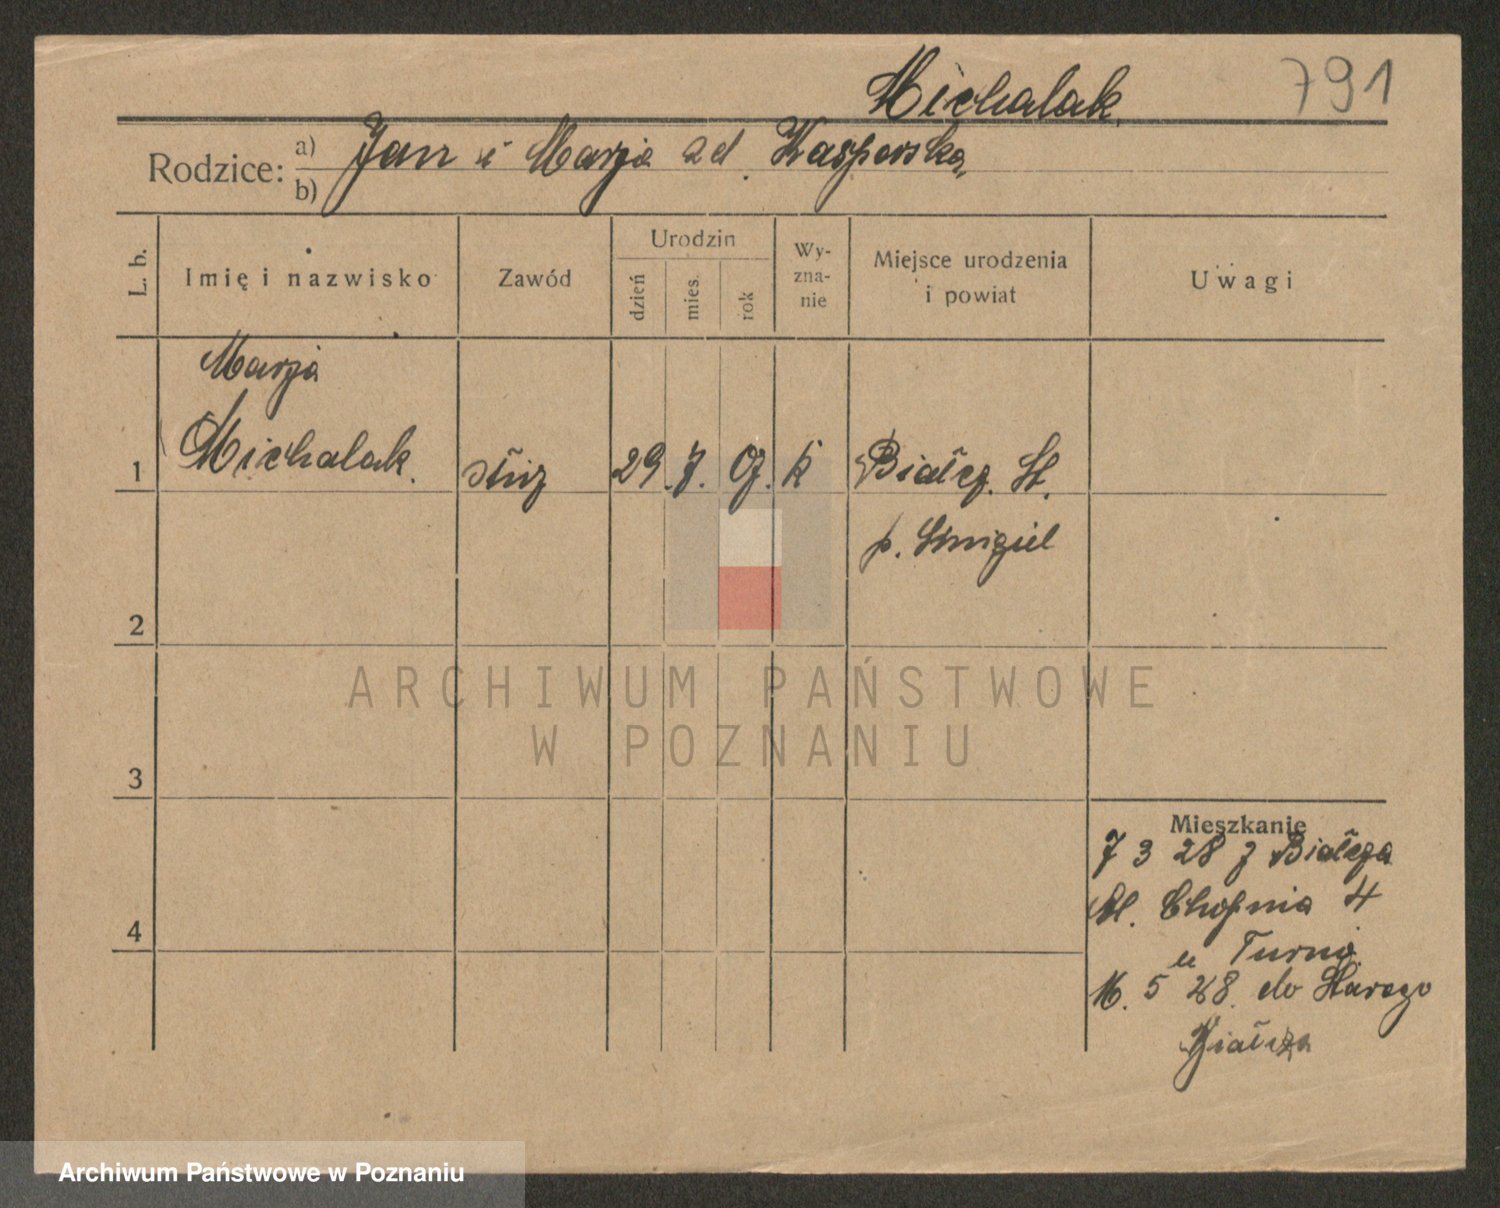 Michalak
791
Rodzice: a) Jan i Marja zd. Kasperska
b)
L. b. Imię i nazwisko Zawód Urodzin dzień mies. rok Wy-zna-nie Miejsce urodzenia i powiat Uwagi
Marja
1 Michalak. służ 29. 7. 07. k Białcz. St.
p. Śmigiel
2
ARCHIWUM PAŃSTWOWE
W POZNANIU
3
Mieszkanie
7 3 28 z Białcza
Chopina 4
4
u Turno
5 28. do Starego
Białcza
Archiwum Państwowe w Poznaniu